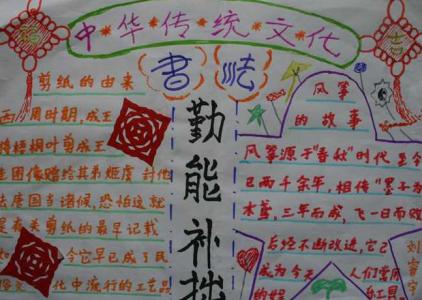 中华传统文化
福
吉
书法
剪纸的由来
西周时期,成王
将梧桐叶剪成王
圭图像赠给其弟姬虞封他
去唐国当诸侯,恐怕这就
是有关剪纸的最早记载
如今它早已成了民
化中流行的工艺品
勤能补拙
风筝
的故事
风筝源于"春秋"时代,至今
已两千余年,相传"墨子为
木鸢,三年而成,飞一日而败
后经不断改进,它已
成为今天 人们常用
的娱 工具